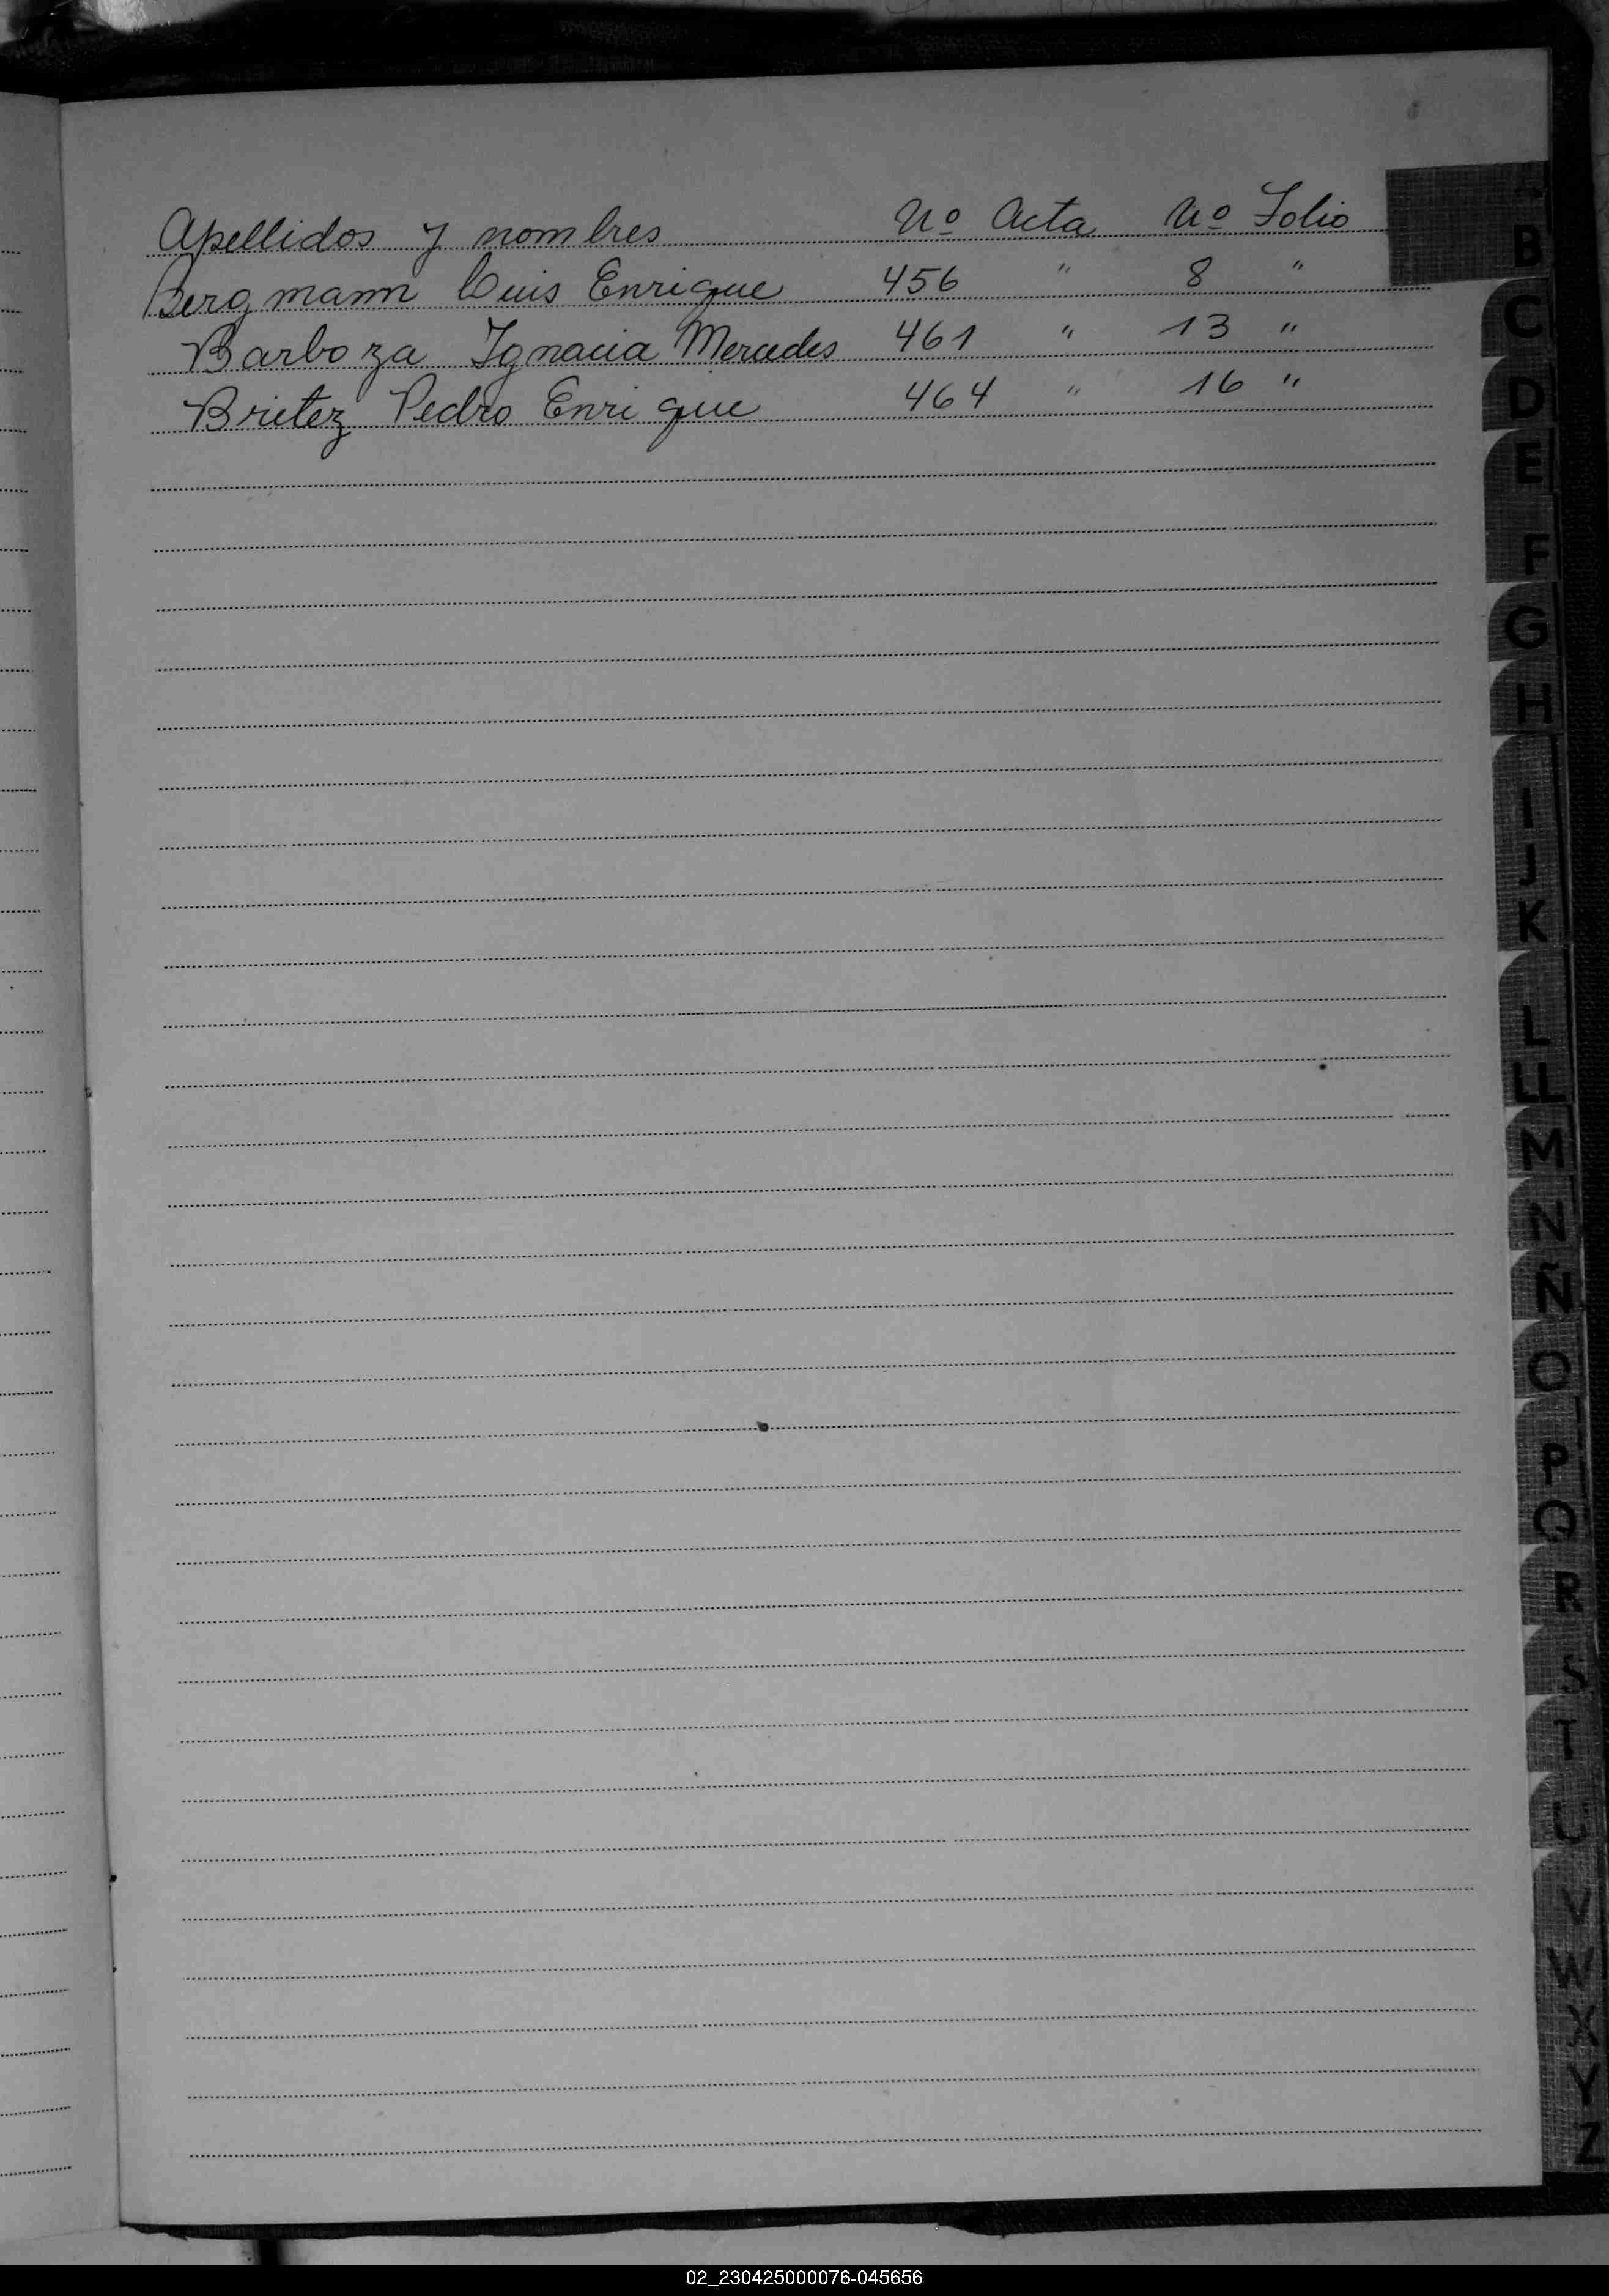 Apellidos y nombres Nº Acta Nº Folio
Bergmann Luis Enrique 456 " 8 "
Barboza Ygnacia Mercedes 461 " 13 "
Britez Pedro Enrique 464 " 16 "
B
C
D
E
F
G
H
I
J
K
L
LL
M
N
Ñ
O
P
Q
R
S
T
U
V
W
X
Y
Z
02_230425000076-045656